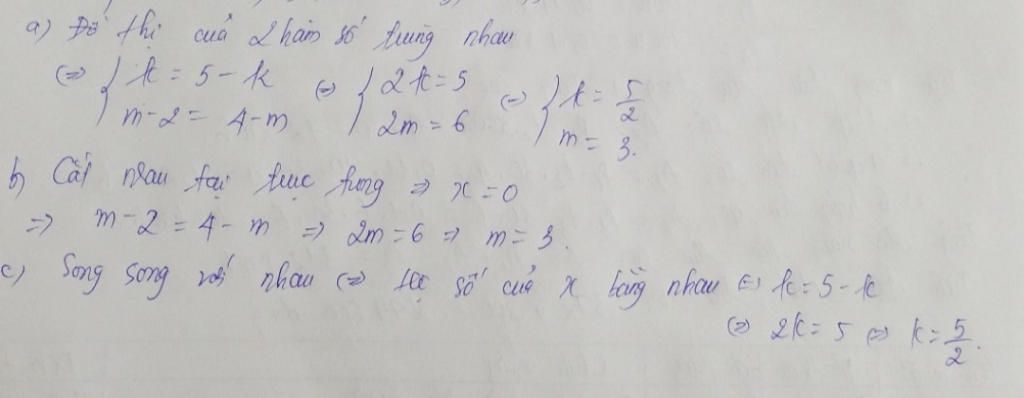 a) Đồ thị của 2 hàm số trùng nhau
⇔ { k = 5 - k ; m - 2 = 4 - m ⇔ { 2k = 5 ; 2m = 6 ⇔ { k = 5/2 ; m = 3.
b) Cắt nhau tại trục tung ⇒ x = 0
⇒ m - 2 = 4 - m ⇒ 2m = 6 ⇒ m = 3.
c) Song song với nhau ⇔ hệ số của x bằng nhau ⇔ k = 5 - k
⇔ 2k = 5 ⇔ k = 5/2.